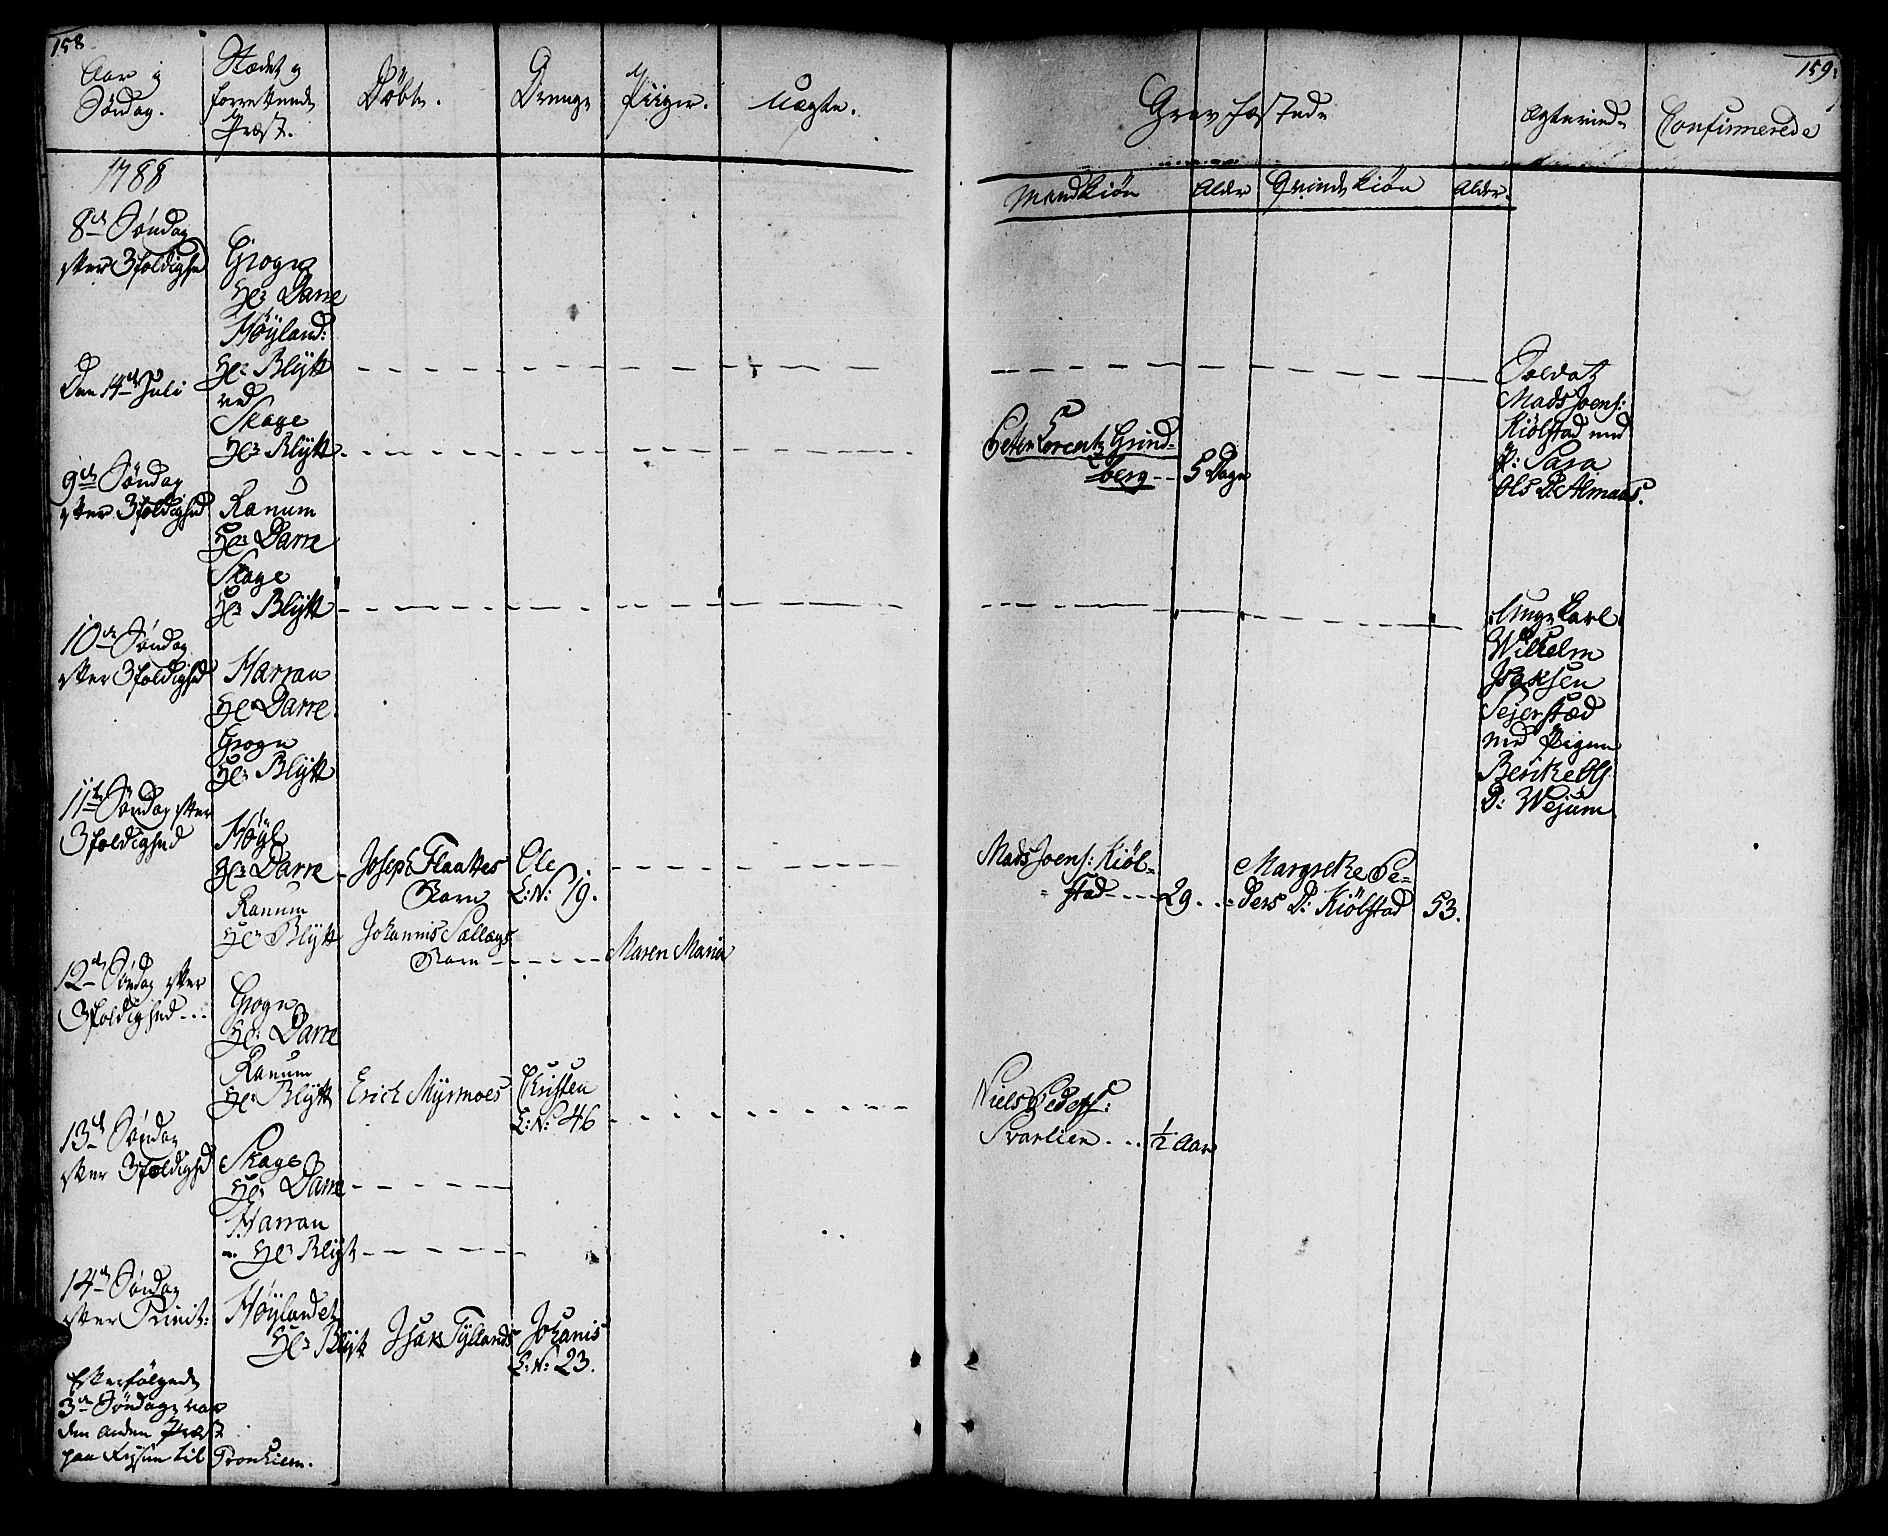 158
Aar og
Søndag.
Stædet og
forrettende
Præst.
Døbte.
Drenge
Piiger.
Uægte.
1788
8de Søndag
efter 3foldighed
Grogn
Hr Darre
Høyland:
Hr Blytt
Den 14de Juli
ved
Skage
Hr Blytt
9de Søndag
efter 3foldighed
Ranum
Hr Darre
Skage
Hr Blytt
10de Søndag
efter 3foldighed
Harran
Hr Darre.
Grogn
Hr Blytt
11te Søndag efter
3foldighed
Høyl
Hr Darre
Joseph Flaattes
Barn
Ole
L:N: 19.
Ranum
Hr Blytt
Johannis
Barn
Maren Maria
12te Søndag efter
3foldighed
Grogn
Hr Darre
Ranum
Hr Blytt
Erich Myrmoes
Christen
L:N: 46
13de Søndag
efter 3foldighed
Skage
Hr Darre
Harran
Hr Blytt
14de Søndag
efter Trinit:
Høylandet
Hr Blytt
Isak Tyllands
Johanis
L:N: 23.
Efterfølgende
3de Søndage var
den anden Præst
paa Reysen til Tronhiem.
159
Gravfæstede
Ægteviede
Confirmerede
Mandkiøn
Alder
Qvindekiøn
Alder.
Soldat
Mads Joens:
Kiølstad med
P: Sara
Ols D: Almaas.
Peter Lorentz Grind-
berg -- 5 Dage
Ungekarl
Wilhelm
Isaksen
Sejerstad
med Pigen
Berithe Ols
D: Wejum
Mads Joens: Kiøl-
stad - - - - 29.
Margrethe Pe-
ders D: Kiølstad 53.
Niels Peders:
Svarlien . . . 1/2 Aar